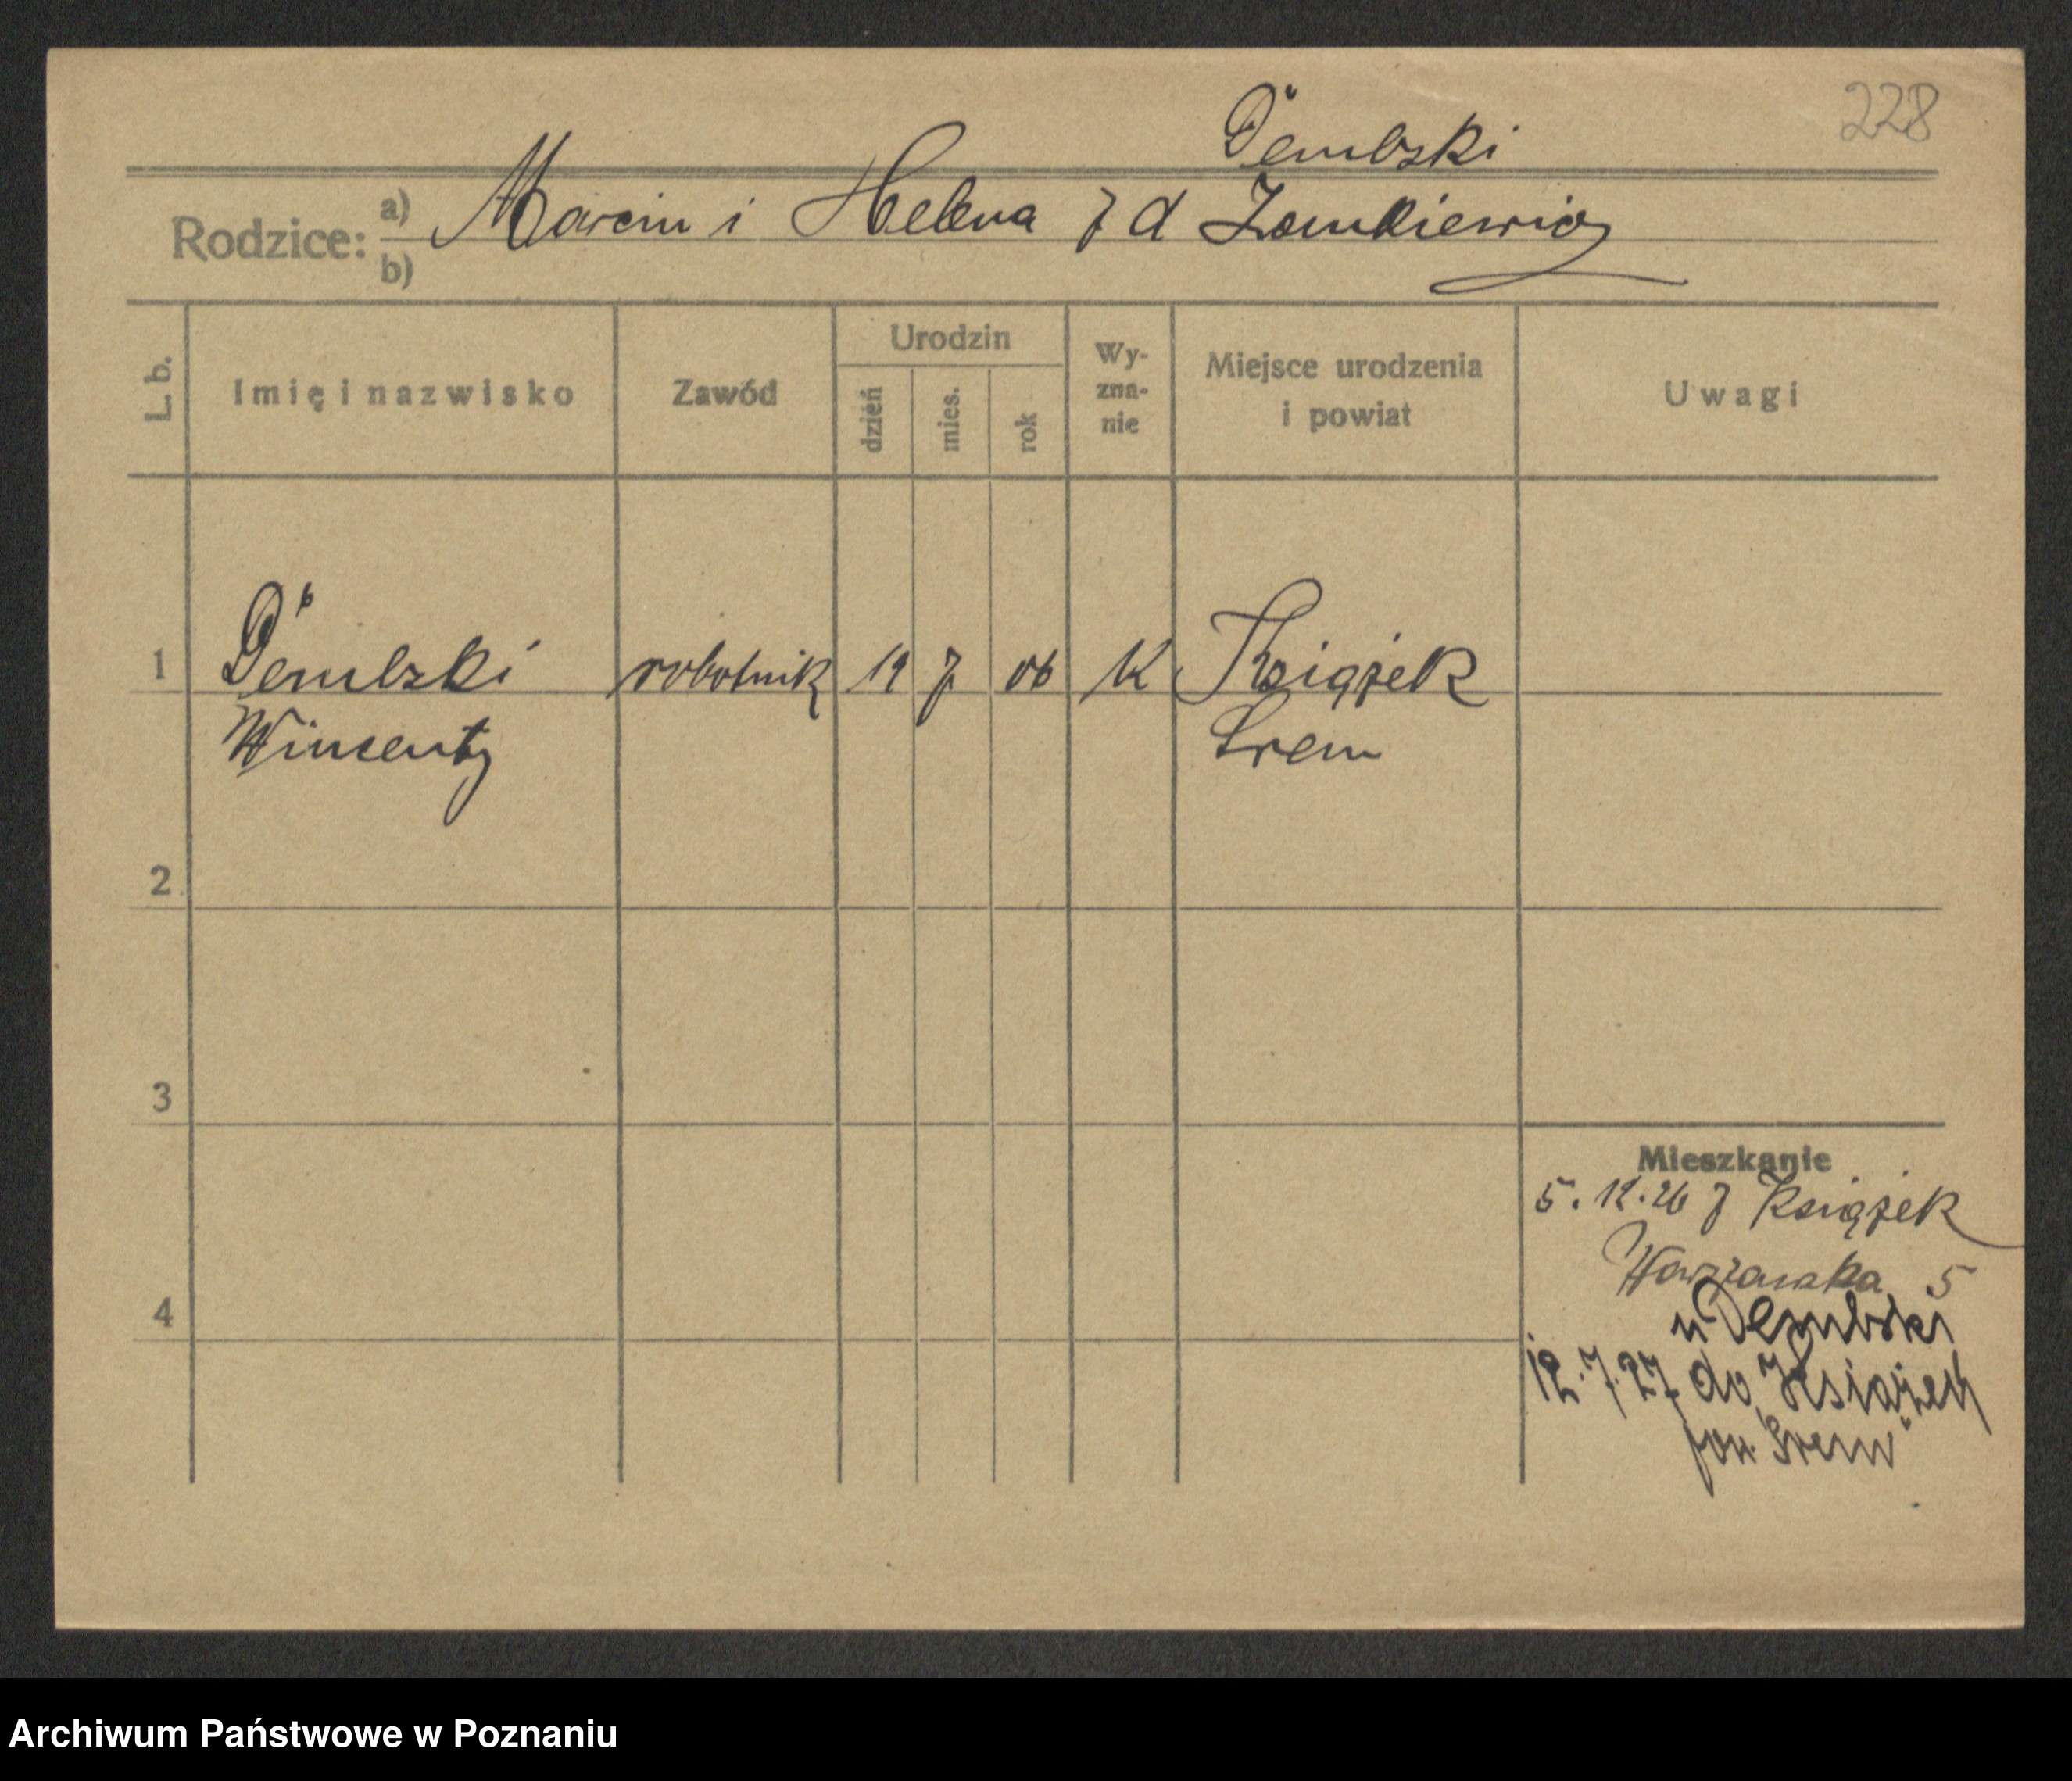 228
Dembski
Rodzice: a) Marcin i Helena z d
b)
L. b.
Imię i nazwisko
Zawód
Urodzin
dzień
mies.
rok
Wy-
zna-
nie
Miejsce urodzenia
i powiat
Uwagi
1 Dembski robotnik 19 7 06 K Książek
Wincenty Śrem
2
3
Mieszkanie
5.12.26 z Książek
Warszawska 5
u Dembski
4
12.7.27 do Książek
pow. Śrem
Archiwum Państwowe w Poznaniu